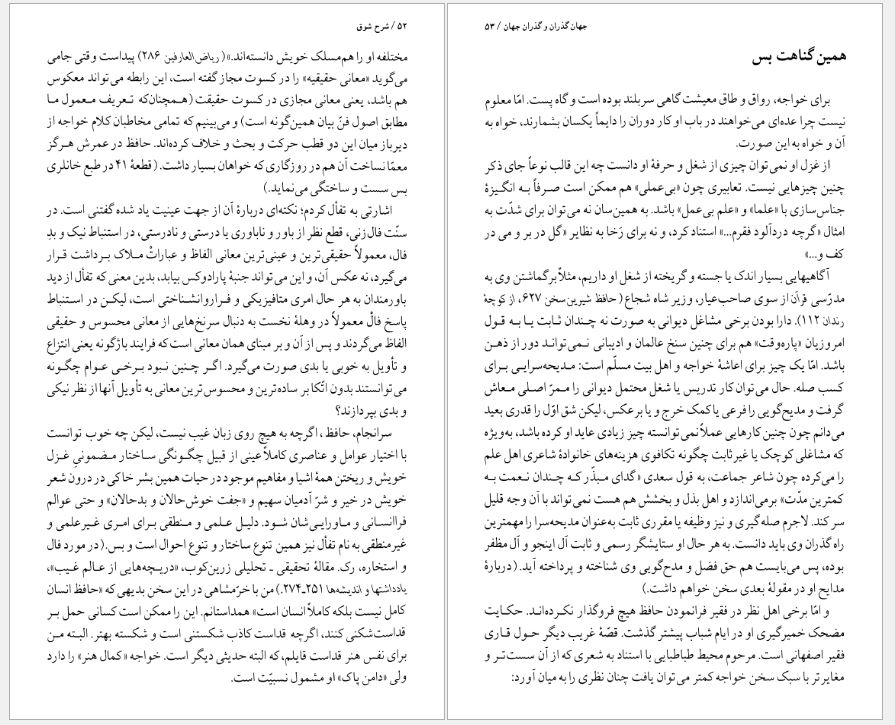 ۵۲ / شرح شوق
مختلفه او را هم‌مسلک خویش دانسته‌اند.» (ریاض‌العارفین ۲۸۶) پیداست وقتی جامی
می‌گوید «معانی حقیقیه» را در کسوت مجاز گفته است، این رابطه می‌تواند معکوس
هم باشد، یعنی معانی مجازی در کسوت حقیقت (همچنان‌که تعریف معمول ما
مطابق اصول فنّ بیان همین‌گونه است) و می‌بینیم که تمامی مخاطبان کلام خواجه از
دیرباز میان این دو قطب حرکت و بحث و خلاف کرده‌اند. حافظ در عمرش هرگز
معمّا نساخت آن هم در روزگاری که خواهان بسیار داشت. (قطعهٔ ۴۱ در طبع خانلری
بس سست و ساختگی می‌نماید.)
اشارتی به تفأل کردم؛ نکته‌ای دربارهٔ آن از جهت عینیت یاد شده گفتنی است. در
سنّت فال‌زنی، قطع نظر از باور و ناباوری یا درستی و نادرستی، در استنباط نیک و بدِ
فال، معمولاً حقیقی‌ترین و عینی‌ترین معانی الفاظ و عباراتْ ملاک برداشت قرار
می‌گیرد، نه عکس آن، و این می‌تواند جنبهٔ پارادوکس بیابد، بدین معنی که تفأل از دید
باورمندان به هر حال امری متافیزیکی و فراروانشناختی است، لیکن در استنباط
پاسخ فالْ معمولاً در وهلهٔ نخست به دنبال سرنخ‌هایی از معانی محسوس و حقیقی
الفاظ می‌گردند و پس از آن و بر مبنای همان معانی است که فرایند باژگونه یعنی انتزاع
و تأویل به خوبی یا بدی صورت می‌گیرد. اگر چنین نبود برخی عوام چگونه
می‌توانستند بدون اتّکا بر ساده‌ترین و محسوس‌ترین معانی به تأویل آنها از نظر نیکی
و بدی بپردازند؟
سرانجام، حافظ، اگرچه به هیچ روی زبان غیب نیست، لیکن چه خوب توانست
با اختیار عوامل و عناصری کاملاً عینی از قبیل چگونگی ساختار مضمونیِ غزل
خویش و ریختن همهٔ اشیا و مفاهیم موجود در حیات همین بشر خاکی در درون شعر
خویش در خیر و شرّ آدمیان سهیم و «جفت خوش‌حالان و بدحالان» و حتی عوالم
فراانسانی و ماورایی‌شان شود. دلیل علمی و منطقی برای امری غیرعلمی و
غیرمنطقی به نام تفأل نیز همین تنوع ساختار و تنوع احوال است و بس. (در مورد فال
و استخاره، رک. مقالهٔ تحقیقی ـ تحلیلی زرین‌کوب، «دریچه‌هایی از عالم غیب»،
یادداشتها و اندیشه‌ها ۲۵۱ـ۲۷۴.) من با خرّمشاهی در این سخن بدیهی که «حافظ انسان
کامل نیست بلکه کاملاً انسان است» همداستانم. این را ممکن است کسانی حمل بر
قداست‌شکنی کنند، اگرچه قداست کاذب شکستنی است و شکسته بهتر. البته من
برای نفس هنر قداست قایلم، که البته حدیثی دیگر است. خواجه «کمال هنر» را دارد
ولی «دامن پاک» او مشمول نسبیّت است.
جهان گذران و گذران جهان / ۵۳
همین گناهت بس
برای خواجه، رواق و طاق معیشت گاهی سربلند بوده است و گاه پست. امّا معلوم
نیست چرا عده‌ای می‌خواهند در باب او کار دوران را دایماً یکسان بشمارند، خواه به
آن و خواه به این صورت.
از غزل او نمی‌توان چیزی از شغل و حرفهٔ او دانست چه این قالب نوعاً جای ذکر
چنین چیزهایی نیست. تعابیری چون «بی‌عملی» هم ممکن است صرفاً به انگیزهٔ
جناس‌سازی با «علما» و «علم بی‌عمل» باشد. به همین‌سان نه می‌توان برای شدّت به
امثال «گرچه دردآلود فقرم...» استناد کرد، و نه برای رَخا به نظایر «گل در بر و می در
کف و...»
آگاهیهایی بسیار اندک یا جسته و گریخته از شغل او داریم، مثلاً برگماشتن وی به
مدرّسی قرآن از سوی صاحب‌عیار، وزیر شاه شجاع (حافظ شیرین‌سخن ۶۲۷، از کوچهٔ
رندان ۱۱۲). دارا بودن برخی مشاغل دیوانی به صورت نه چندان ثابت یا به قول
امروزیان «پاره‌وقت» هم برای چنین سنخ عالمان و ادیبانی نمی‌تواند دور از ذهن
باشد. امّا یک چیز برای اعاشهٔ خواجه و اهل بیت مسلّم است: مدیحه‌سرایی برای
کسب صله. حال می‌توان کار تدریس یا شغل محتمل دیوانی را ممرّ اصلی معاش
گرفت و مدیح‌گویی را فرعی یا کمک خرج و یا برعکس، لیکن شق اوّل را قدری بعید
می‌دانم چون چنین کارهایی عملاً نمی‌توانسته چیز زیادی عاید او کرده باشد، به‌ویژه
که مشاغلی کوچک یا غیر ثابت چگونه تکافوی هزینه‌های خانوادهٔ شاعری اهل علم
را می‌کرده چون شاعر جماعت، به قول سعدی «گدای مبذّر که چندان نعمت به
کمترین مدّت» برمی‌اندازد و اهل بذل و بخشش هم هست نمی‌تواند با آن وجه قلیل
سر کند. لاجرم صله‌گیری و نیز وظیفه یا مقرری ثابت به‌عنوان مدیحه‌سرا را مهمترین
راه گذران وی باید دانست. به هر حال او ستایشگر رسمی و ثابت آل اینجو و آل مظفر
بوده، پس می‌بایست هم حق فضل و مدح‌گویی وی شناخته و پرداخته آید. (دربارهٔ
مدایح او در مقولهٔ بعدی سخن خواهم داشت.)
و امّا برخی اهل نظر در فقیر فرانمودن حافظ هیچ فروگذار نکرده‌اند. حکایت
مضحک خمیرگیری او در ایام شباب پیشتر گذشت. قصّهٔ غریب دیگر حول قاری
فقیر اصفهانی است. مرحوم محیط طباطبایی با استناد به شعری که از آن سست‌تر و
مغایرتر با سبک سخن خواجه کمتر می‌توان یافت چنان نظری را به میان آورد: